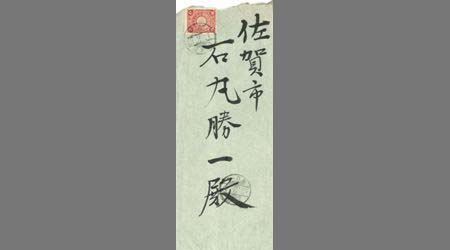 佐賀市
石丸勝一殿